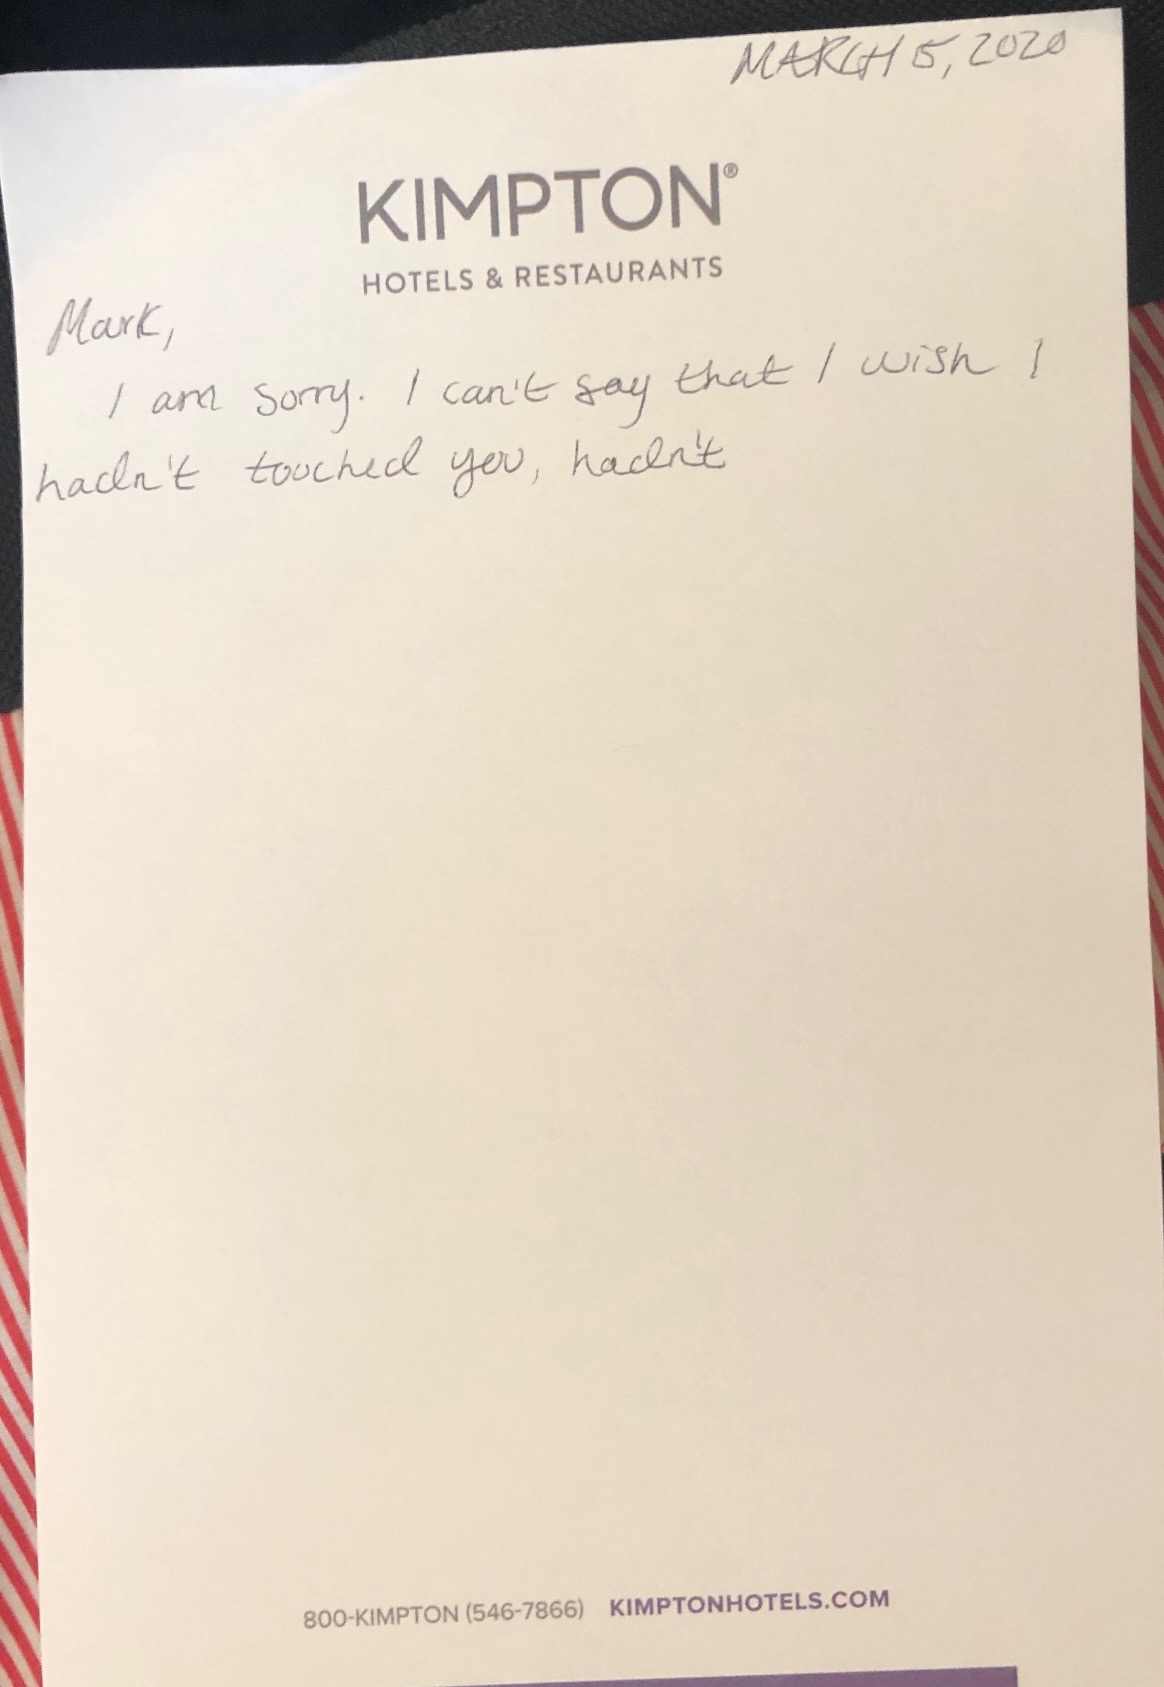 MARCH 5, 2020
KIMPTON®
HOTELS & RESTAURANTS
Mark,
I am sorry. I can't say that I wish I
hadn't touched you, hadn't
800-KIMPTON (546-7866) KIMPTONHOTELS.COM